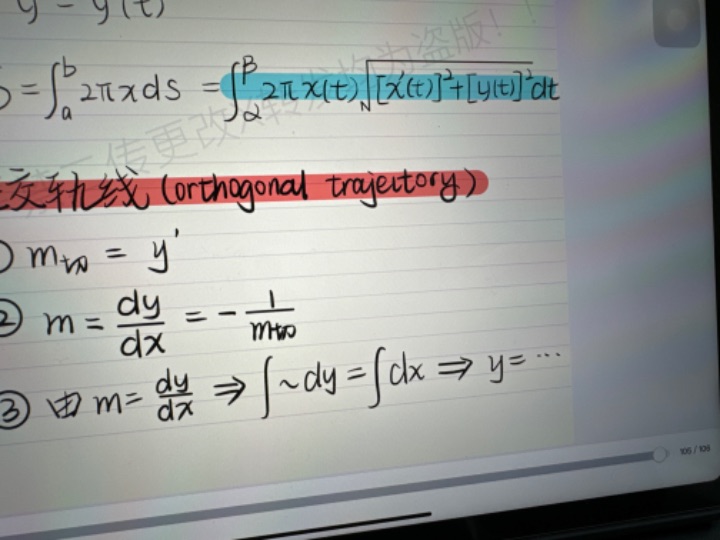 y = y(t)
S = ∫_a^b 2πx ds = ∫_α^β 2πx(t)√([x'(t)]²+[y'(t)]²) dt
交轨线 (orthogonal trajectory)
① m切 = y'
② m = dy/dx = - 1/m切
③ 由 m = dy/dx ⇒ ∫~dy = ∫dx ⇒ y = ...
105 / 106